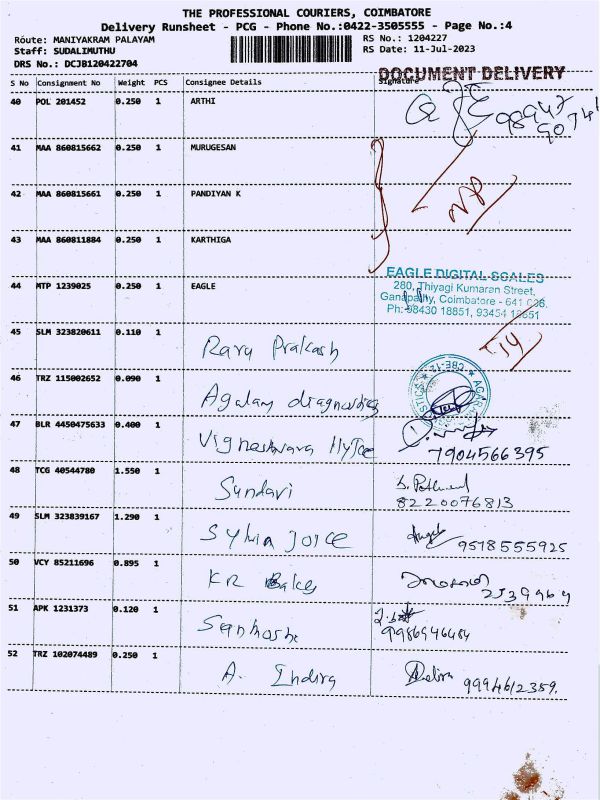 THE PROFESSIONAL COURIERS, COIMBATORE
Delivery Runsheet - PCG - Phone No.:0422-3505555 - Page No.:4
Route: MANIYAKRAM PALAYAM RS No.: 1204227
Staff: SUDALIMUTHU RS Date: 11-Jul-2023
DRS No.: DCJB120422704
DOCUMENT DELIVERY
S No Consignment No Weight PCS Consignee Details Signature
40 POL 201452 0.250 1 ARTHI
98947
90741
41 MAA 860815662 0.250 1 MURUGESAN
42 MAA 860815661 0.250 1 PANDIYAN K
NP
43 MAA 860811884 0.250 1 KARTHIGA
44 MTP 1239025 0.250 1 EAGLE
EAGLE DIGITAL SCALES
280, Thiyagi Kumaran Street,
Ganapathy, Coimbatore - 641 036.
Ph: 98430 18851, 93454 18651
45 SLM 323820611 0.110 1 Ravu Prakash
46 TRZ 115002652 0.090 1 Agalam diagnostics
47 BLR 4450475633 0.400 1 Vigneshwara
7904566395
48 TCG 40544780 1.550 1 Sundari
8220076813
49 SLM 323839167 1.290 1 Sylvia Joice
9518555925
50 VCY 85211696 0.895 1 KR Bakes
2539969
51 APK 1231373 0.120 1 Santhosh
9986946484
52 TRZ 102074489 0.250 1 A. Indira
9994612359.